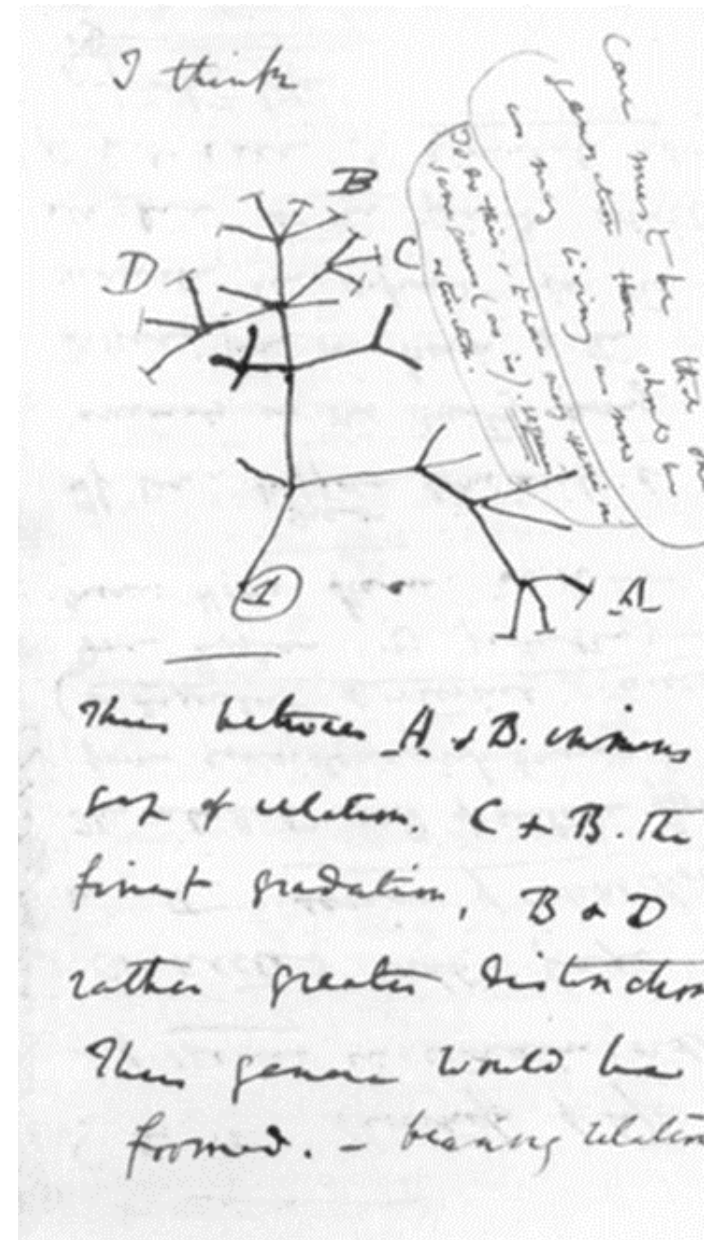 I think
B
C
D
A
1
Case must be that one
generation then should be
as many living as now
To do this & to have many species in
same genus (as is). requires
extinction.
Thus between A & B. immens
gap of relation. C & B. The
finest gradation, B & D
rather greater distinction
Thus genera would be
formed. — bearing relation